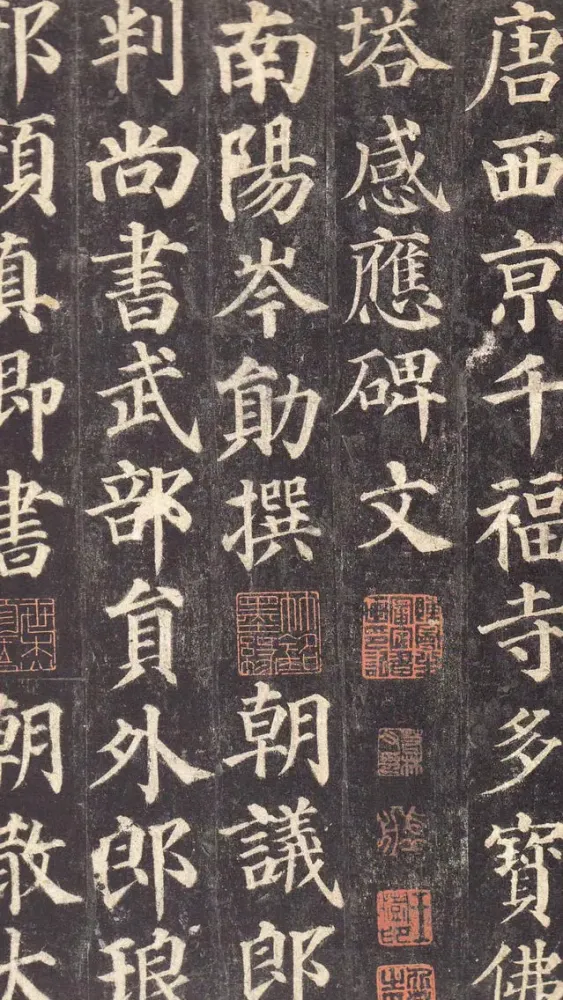 唐西京千福寺多寶佛
塔感應碑文
南陽岑勛撰朝議郎
判尚書武部員外郎琅
邪顏真卿書朝散大